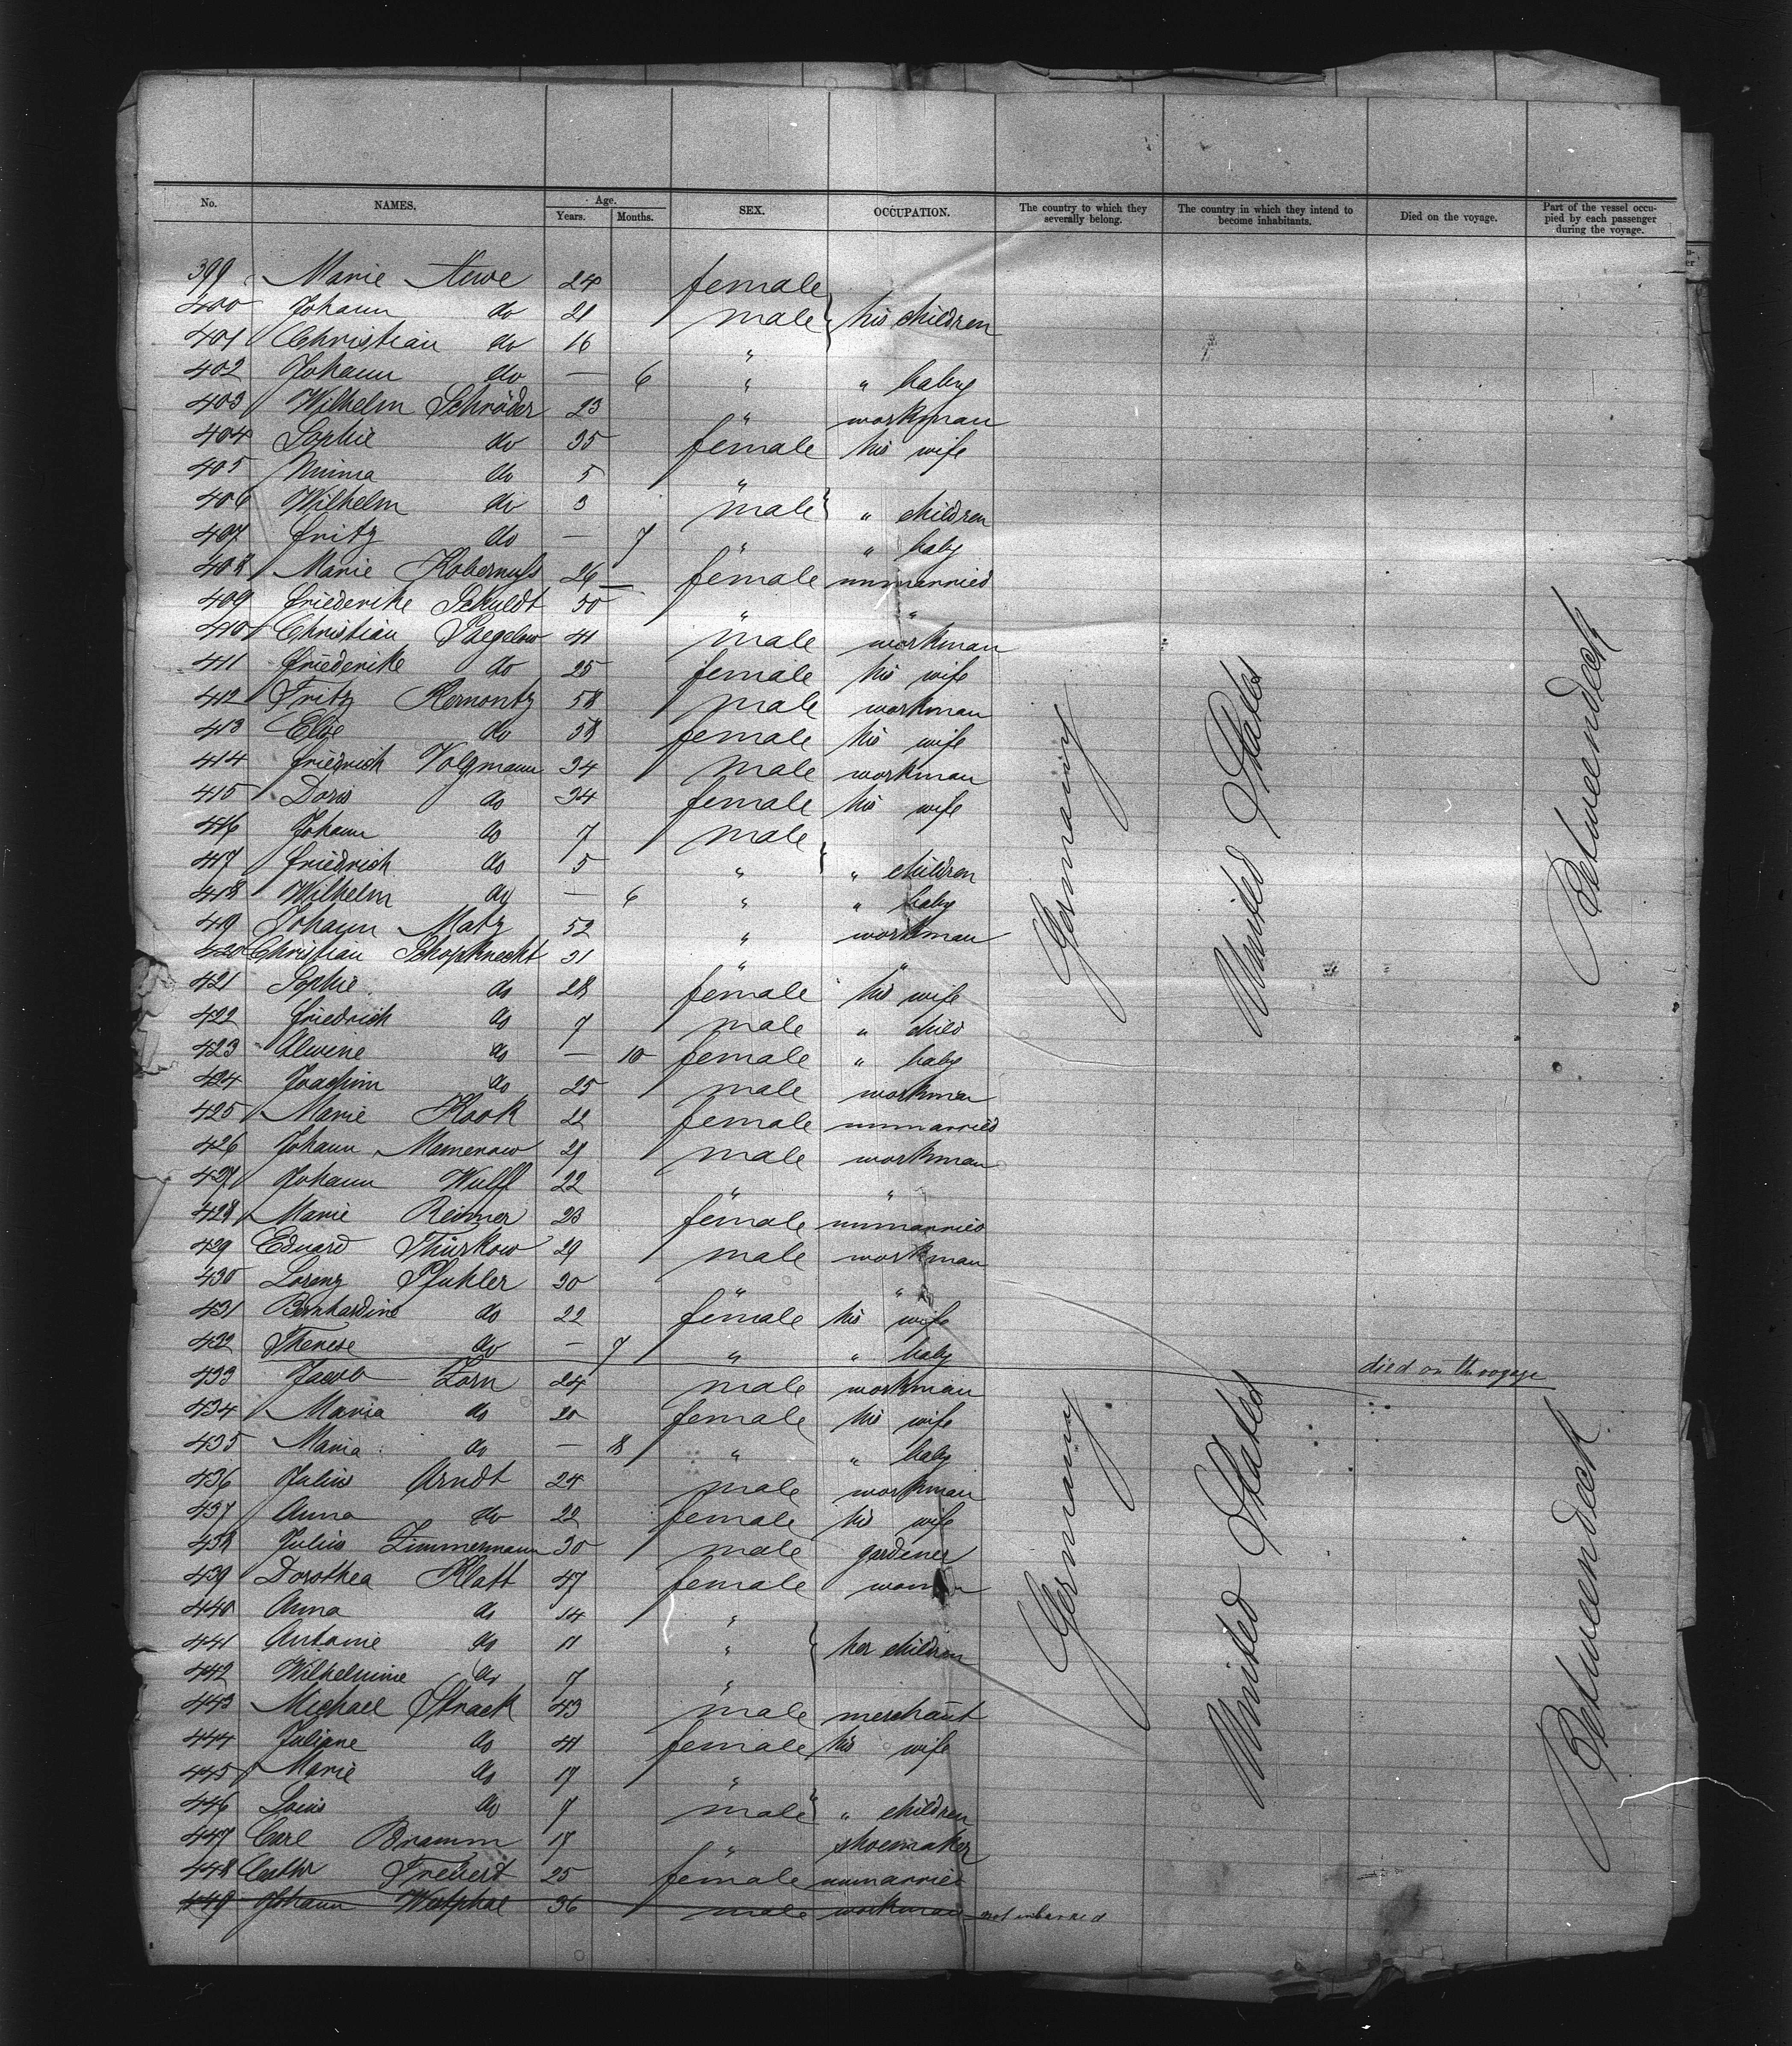 No. NAMES. Age. Years. Months. SEX. OCCUPATION. The country to which they severally belong. The country in which they intend to become inhabitants. Died on the voyage. Part of the vessel occupied by each passenger during the voyage.
399 Marie 24 female
400 Johann do 21 male } his children
401 Christian do 16 "
402 Johann do — 6 " " baby
403 Wilhelm Schröder 23 " workman
404 Sophie do 35 female his wife
405 Minna do 5 "
406 Wilhelm do 3 male } " children
407 Fritz do — 7 " " baby
408 Marie Kobernuss 26 — female unmarried
409 Friederike Schuldt 50 " "
410 Christian Paegelow 41 male workman
411 Friederike do 25 female his wife
412 Fritz 58 male workman
413 Elise do 58 female his wife
414 Friedrich Volgmann 34 male workman
415 Doris do 34 female his wife
416 Johann do 7 male
417 Friedrich do 5 " } " children
418 Wilhelm do — 6 " " baby
419 Johann Matz 52 " workman
420 Christian Schopknecht 31 " "
421 Sophie do 28 female his wife
422 Friedrich do 7 male " child
423 Alwine do — 10 female " baby
424 Joachim do 25 male workman
425 Marie Kook 22 female unmarried
426 Johann Mamerow 21 male workman
427 Johann Wulff 22 " "
428 Marie Reimer 23 female unmarried
429 Eduard Thürkow 29 male workman
430 Lorenz Pfuhler 30 " "
431 Bernhardine do 22 female his wife
432 Therese do — 7 " " baby died on the voyage
433 Jacob Zorn 24 male workman
434 Maria do 20 female his wife
435 Maria do — 8 " " baby
436 Julius Arndt 24 male workman
437 Anna do 22 female his wife
438 Julius Zimmermann 30 male gardener
439 Dorothea Klatt 47 female woman
440 Anna do 14 "
441 Antonie do 11 " } her children
442 Wilhelmine do 7 "
443 Michael Strack 43 male merchant
444 Juliane do 41 female his wife
445 Marie do 17 "
446 Louis do 7 male } " children
447 Carl Bramm 17 " shoemaker
448 Cathr Trebert 25 female unmarried
449 Johann Westphal 36 male workman not embarked
Germany United States Betweendeck
Germany United States Betweendeck